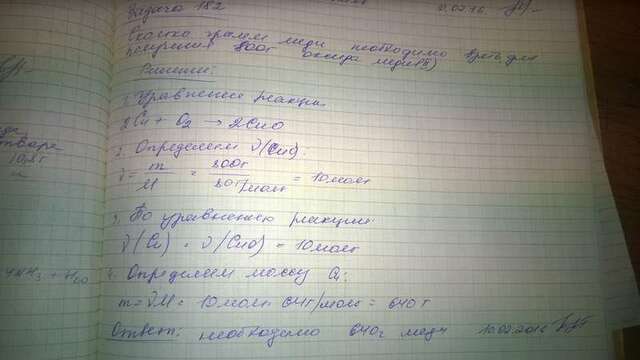 Задача 182
Сколько грамм меди необходимо взять для
получения 800г оксида меди(II)
Решение:
1. Уравнение реакции
2Cu + O2 → 2CuO
2. Определяем ν(CuO):
ν = m/M = 800г / 80г/моль = 10моль
3. По уравнению реакции
ν(Cu) = ν(CuO) = 10моль
4. Определяем массу Cu:
m = νM = 10моль 64г/моль = 640г
Ответ: необходимо 640г меди
4NH3 + H2O